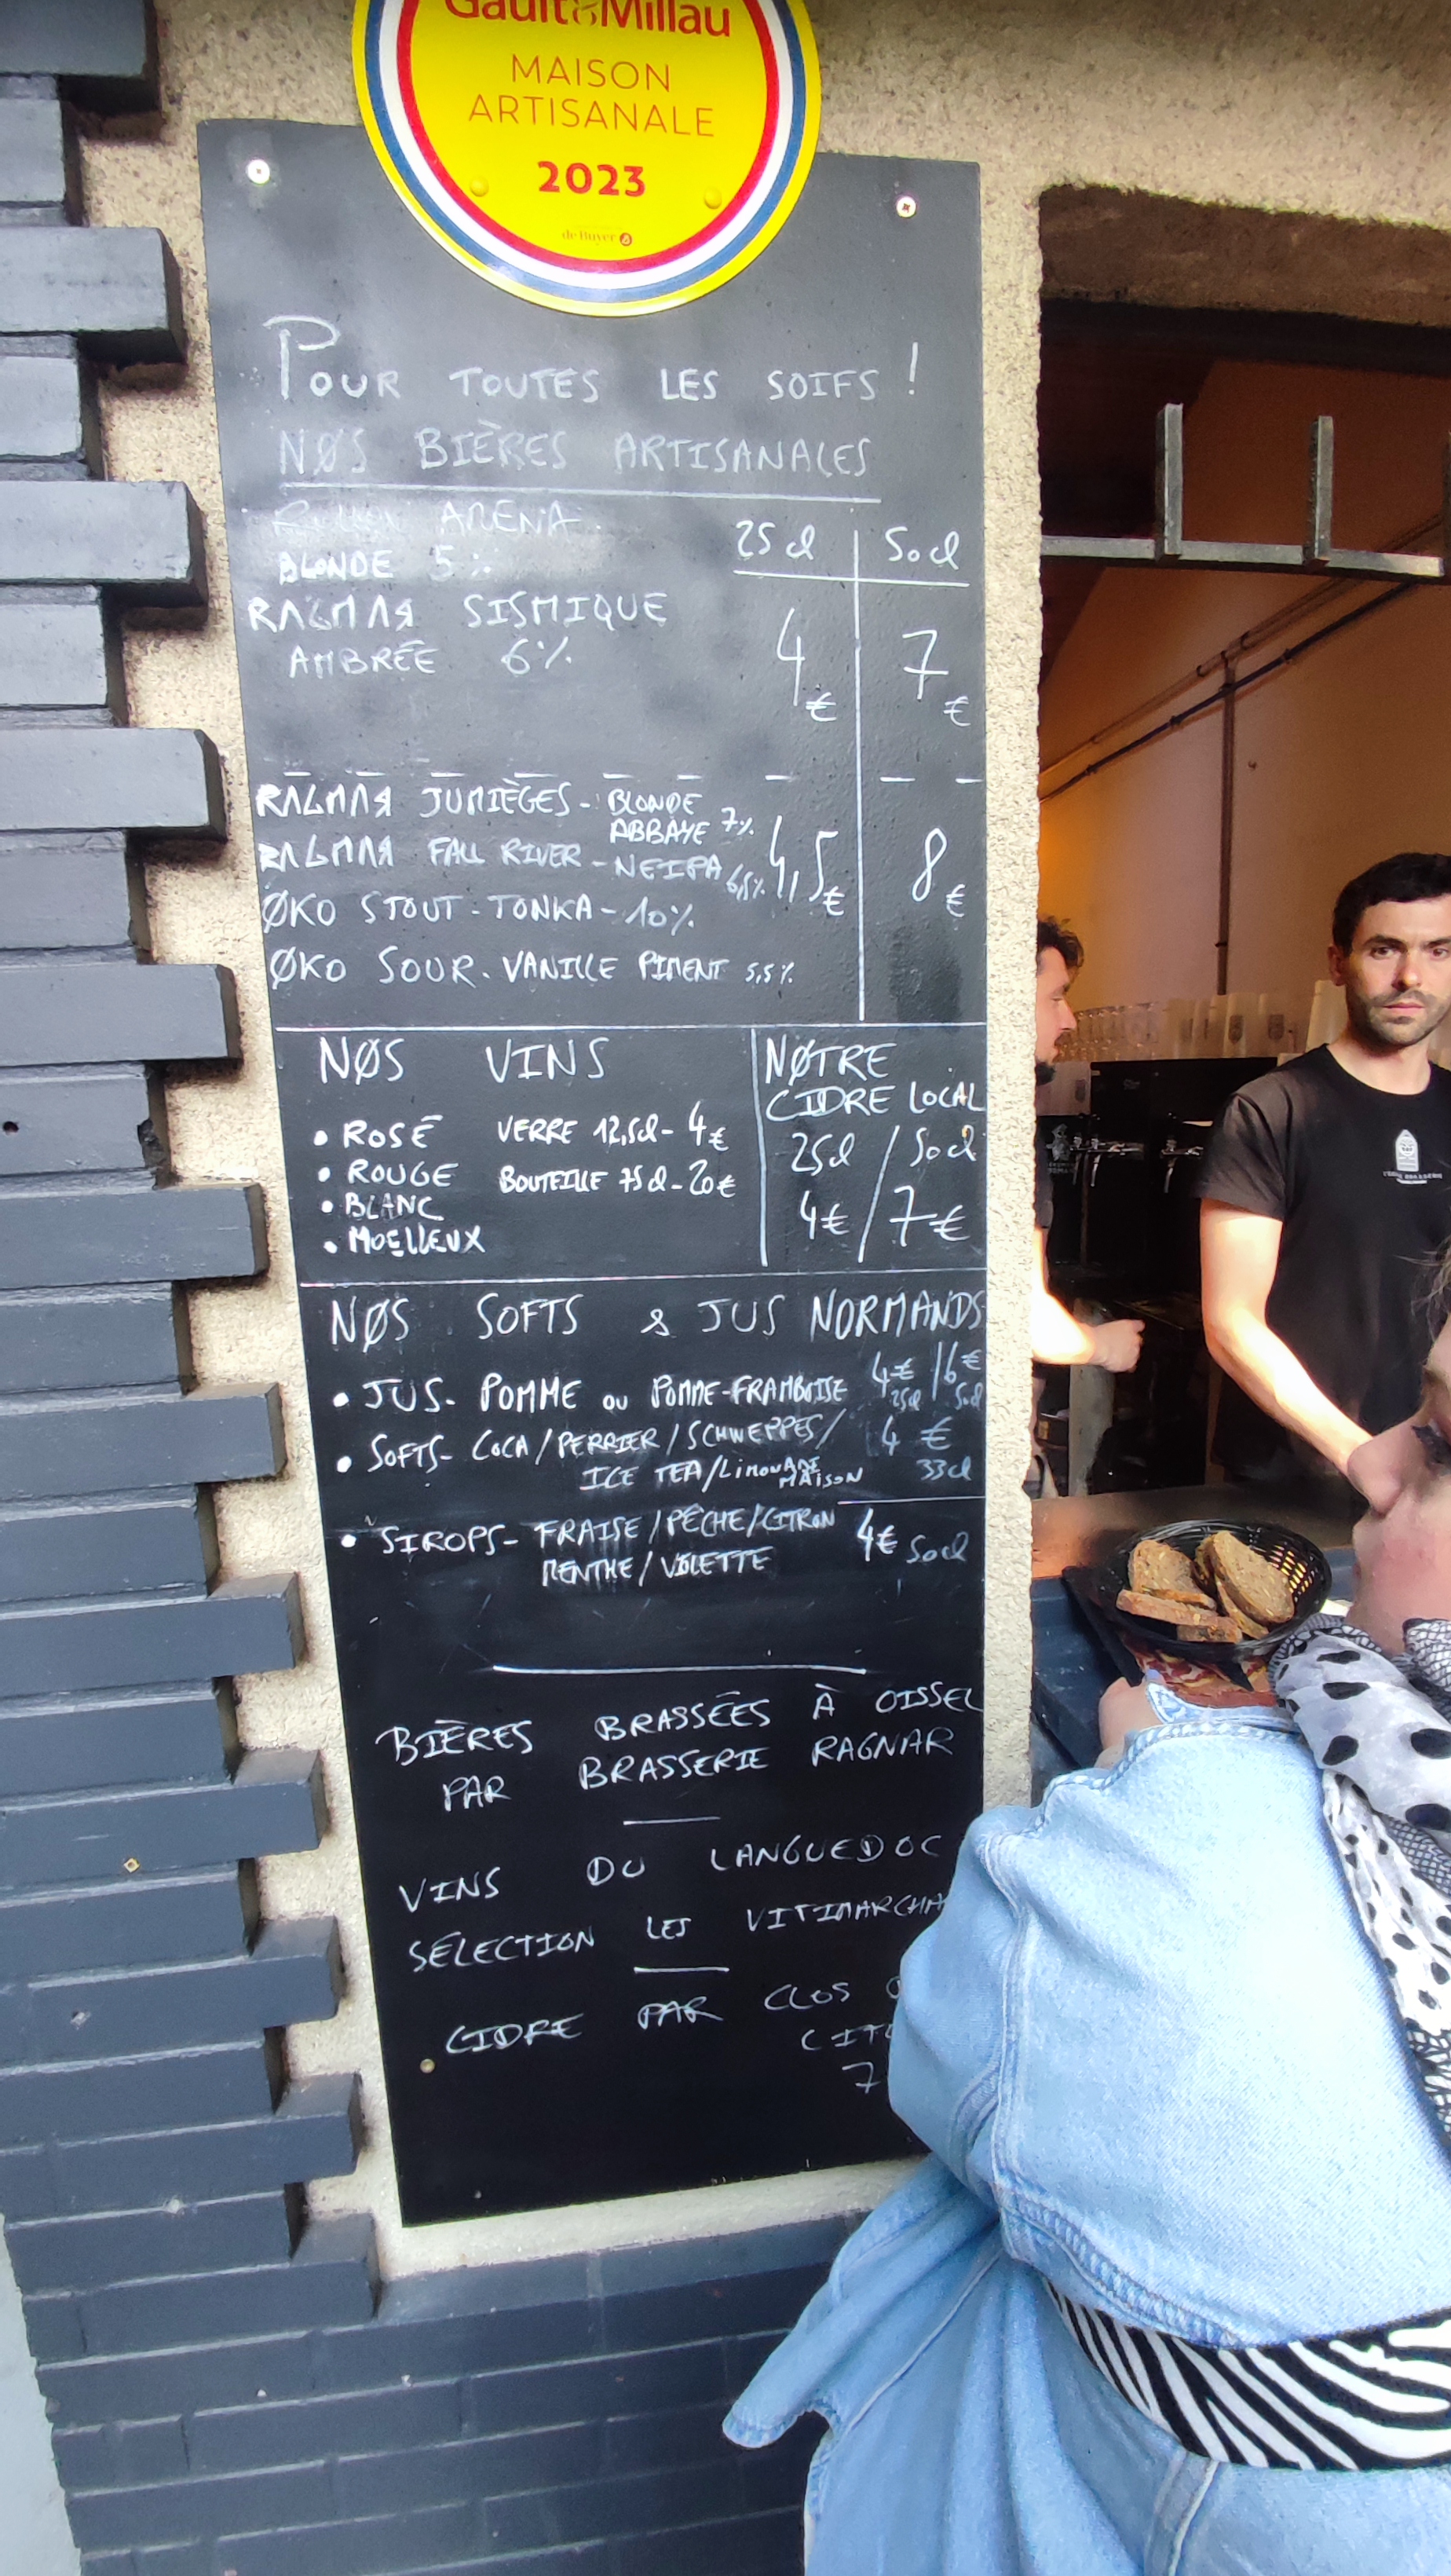 Gault&Millau
MAISON
ARTISANALE
2023
de Buyer
POUR TOUTES LES SOIFS !
NØS BIÈRES ARTISANALES
ARENA
BLONDE 5%
25cl 50cl
RAGNAR SISMIQUE
AMBRÉE 6%
4€ 7€
RAGNAR JUMIÈGES - BLONDE
ABBAYE 7%
RAGNAR FALL RIVER - NEIPA 6,5%
4,5€ 8€
ØKO STOUT - TONKA - 10%
ØKO SOUR - VANILLE PIMENT 5,5%
NØS VINS
• ROSÉ VERRE 12,5cl - 4€
• ROUGE BOUTEILLE 75cl - 20€
• BLANC
• MOELLEUX
NØTRE
CIDRE LOCAL
25cl / 50cl
4€ / 7€
NØS SOFTS & JUS NORMANDS
• JUS - POMME OU POMME-FRAMBOISE 4€ / 6€
25cl 50cl
• SOFTS - COCA / PERRIER / SCHWEPPES / 4€
ICE TEA / LIMONADE MAISON 33cl
• SIROPS - FRAISE / PÊCHE / CITRON 4€ 50cl
MENTHE / VIOLETTE
BIÈRES BRASSÉES À OISSEL
PAR BRASSERIE RAGNAR
VINS DU LANGUEDOC
SÉLECTION LES
CIDRE PAR CLOS